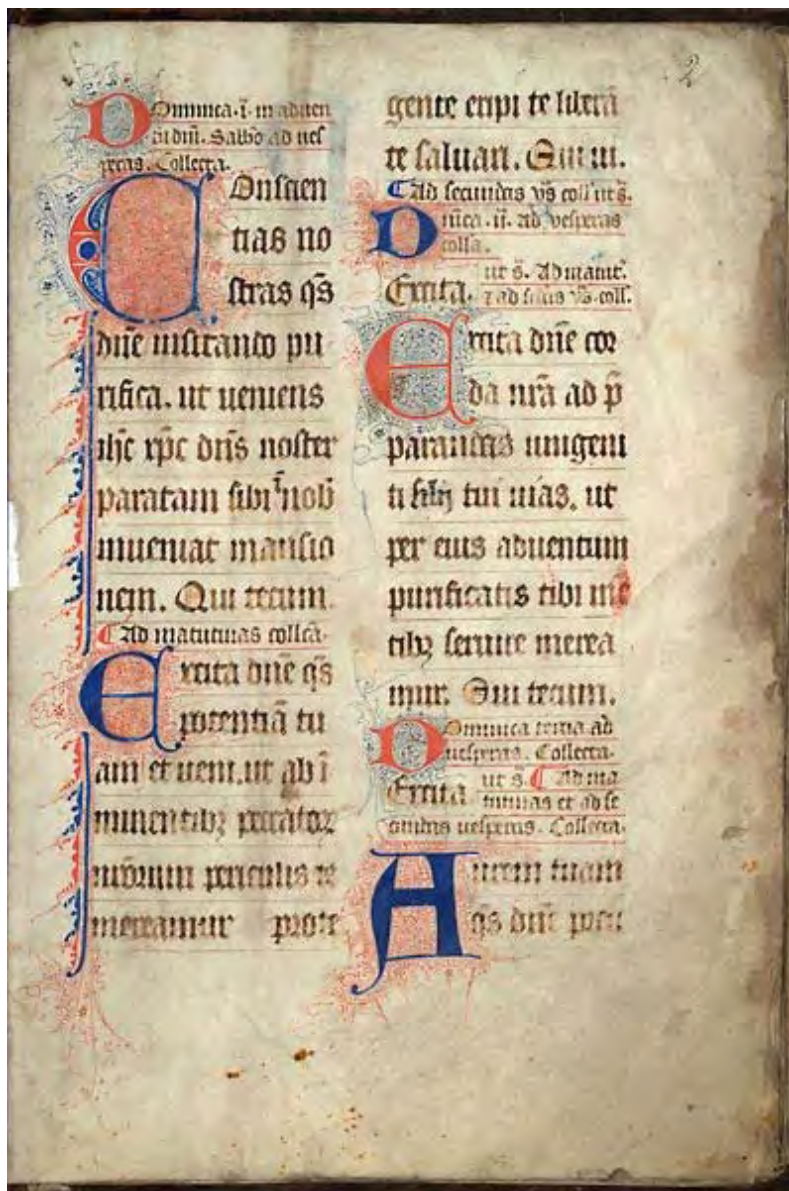 2
Dominica .i. in aduen
tu dnī. Sabbo ad ues
peras. Collecta.
Conscien
tias no
stras q̄s
dn̄e uisitando pu
rifica. ut ueniens
ihc̄ xp̄c dn̄s noster
paratam sibi i nob̄
inueniat mansio
nem. Qui tecum.
Ad matutinas collcā.
Excita dn̄e q̄s
potentiā tu
am et ueni. ut ab ī
minentibꝫ peccatoꝝ
nr̄orum periculis te
mereamur prote
gente eripi te libera
te saluari. Qui ui.
Ad secundas vs̄ coll ut s̄.
Dn̄ica .ii. ad vesperas
colla.
ut s̄. Ad matut̄.
Excita. ⁊ ad secūs vs̄. coll.
Excita dn̄e cor
da nr̄a ad p̄
parandas unigeni
ti filij tui uias. ut
per eius aduentum
purificatis tibi mē
tibꝫ seruire merea
mur. Qui tecum.
Dominica tercia ad
uesperas. Collecta.
Excita ut s̄. Ad ma
tutinas et ad se
cundas uesperas. Collecta.
Aurem tuam
q̄s dn̄e preci